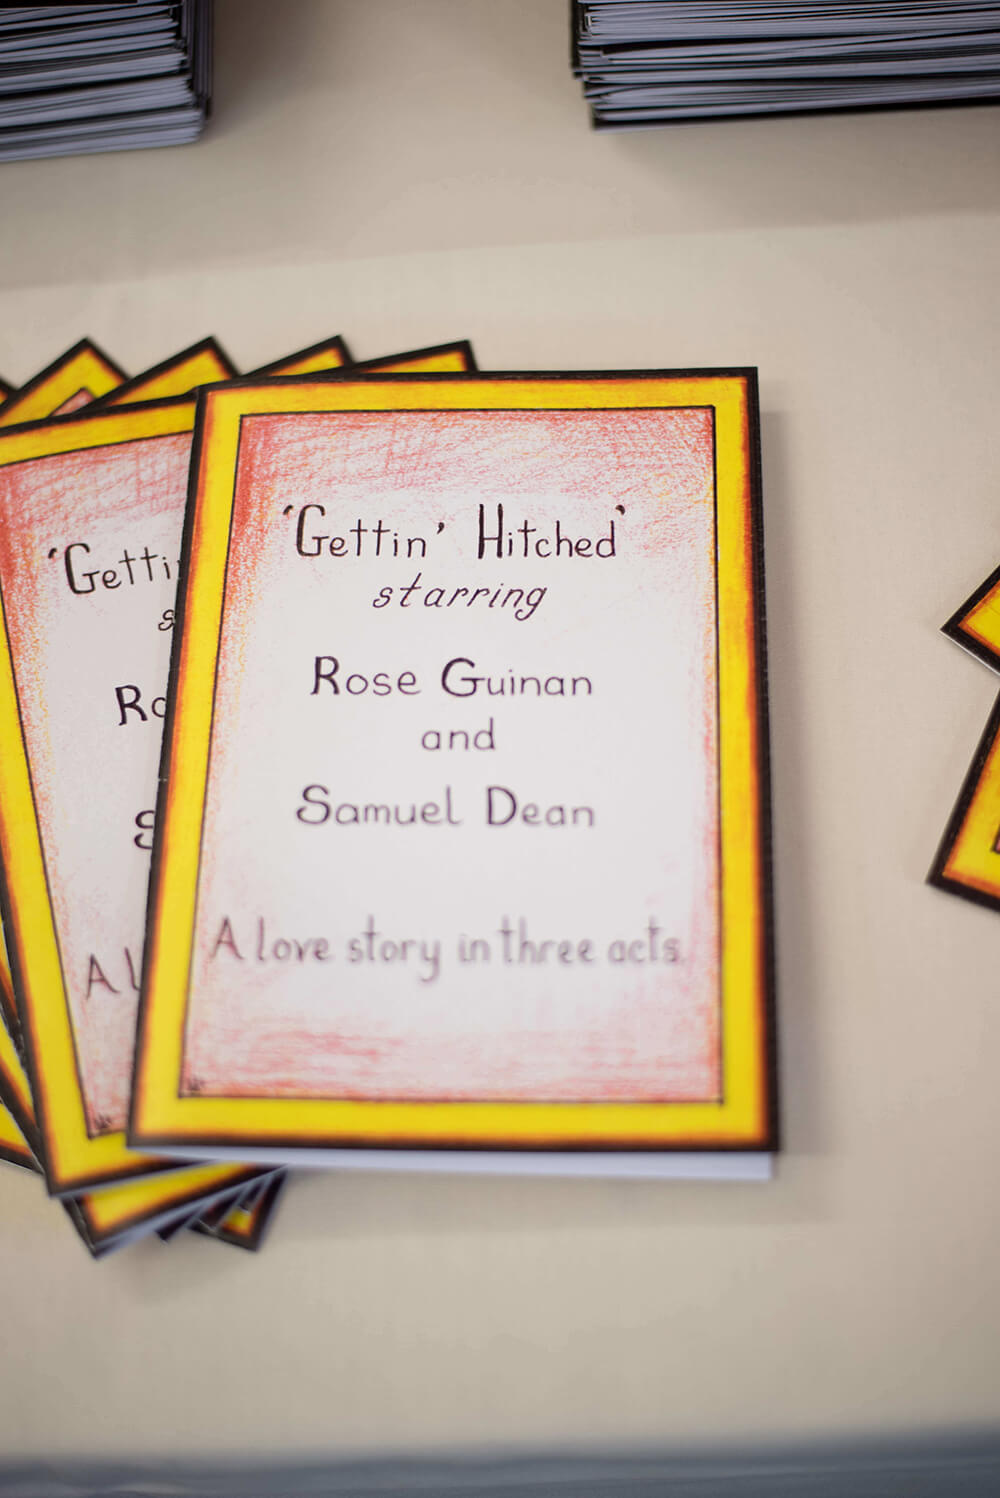 'Gettin' Hitched'
starring
Rose Guinan
and
Samuel Dean
A love story in three acts.
'Getti
s
Ro
S
A l